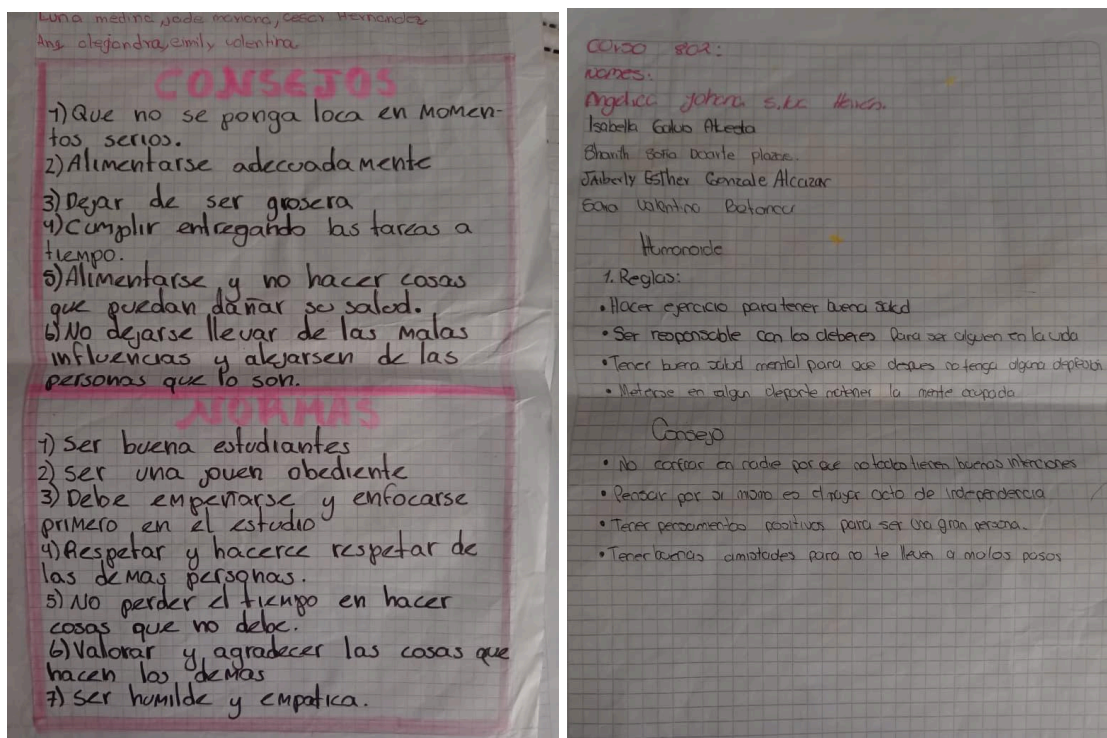 Luna medina, jade moreno, Cesar Hernandez
Ang alejandra, emily valentina
CONSEJOS
1) Que no se ponga loca en momen-
tos serios.
2) Alimentarse adecuadamente
3) Dejar de ser grosera
4) Cumplir entregando las tareas a
tiempo.
5) Alimentarse y no hacer cosas
que puedan dañar su salud.
6) No dejarse llevar de las malas
influencias y alejarsen de las
personas que lo son.
NORMAS
1) Ser buena estudiantes
2) ser una joven obediente
3) Debe empeñarse y enfocarse
primero en el estudio
4) Respetar y hacerce respetar de
las demas personas.
5) No perder el tiempo en hacer
cosas que no debe.
6) Valorar y agradecer las cosas que
hacen los demas
7) Ser humilde y empatica.
Curso 802:
names:
Angelica yohana
Isabella
Sharith Sofia Duarte plazas.
Jhiberly Esther Gonzale Alcazar
Sara Valentina Betancur
Humanoide
1. Reglas:
• Hacer ejercicio para tener buena salud
• Ser responsable con los deberes Para ser alguien en la vida
• Tener buena salud mental para que despues no tenga alguna depresión
• Meterse en algun deporte mantener la mente ocupada
Consejo
• No confiar en nadie por que no todos tienen buenas intenciones
• Pensar por si mismo es el mayor acto de independencia
• Tener pensamentos positivos para ser una gran persona.
• Tener buenas amistades para no te lleven a malos pasos